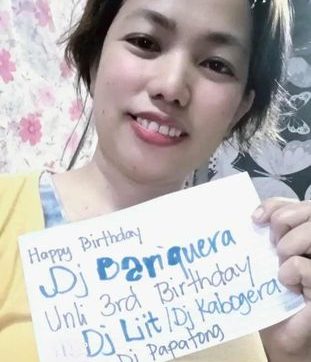 Happy Birthday
Dj Dariquera
Unli 3rd Birthday
Dj Liit/Dj Kabogera
Dj Papatong